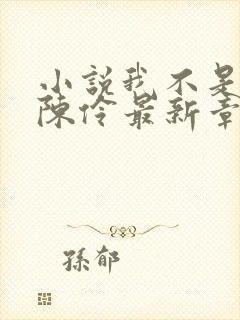 小說我不是
陳伶最新章
孫郁